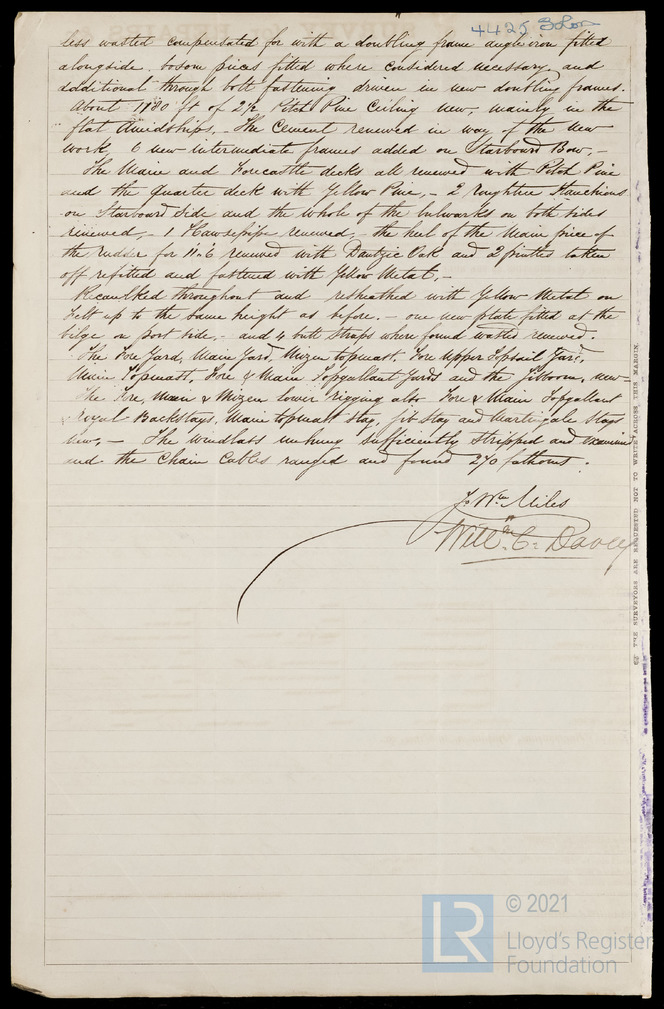 44253 Lon
less wasted compensated for with a doubling frame angle iron fitted
alongside. bosom pieces fitted where considered necessary, and
additional through bolt fastening driven in new doubling frames.
About 1980 ft of 2½ Pitch Pine Ceiling new, mainly in the
flat Amidships. The Cement renewed in way of the new
work. 6 new intermediate frames added on Starboard Bow, –
The Main and Forecastle decks all renewed with Pitch Pine
and the quarter deck with Yellow Pine, – 2 roughtree Stanchions
on Starboard side and the whole of the bulwarks on both sides
renewed, – 1 Hawsepipe renewed, – the heel of the Main piece of
the rudder for 11.6 renewed with Dantzic Oak and 2 pintles taken
off refitted and fastened with Yellow Metal, –
Recaulked throughout and resheathed with Yellow Metal on
Felt up to the same height as before. – one new plate fitted at the
bilge on port side, – and 4 butt straps where found wasted renewed.
The Fore Yard, Main Yard, Mizen topmast, Fore upper Topsail Yard,
Main Topmast, Fore & Main Topgallant Yards and the jibboom, new –
The Fore, Main & Mizen Lower rigging also Fore & Main Topgallant
& royal Backstays, Main topmast stay, jib stay and Martingale stays
new, – The windlass unhung sufficiently stripped and examined
and the Chain Cables ranged and found 270 fathoms.
J. Wm Miles
Willm C. Davey
THE SURVEYORS ARE REQUESTED NOT TO WRITE ACROSS THIS MARGIN.
© 2021
LR
Lloyd's Register
Foundation